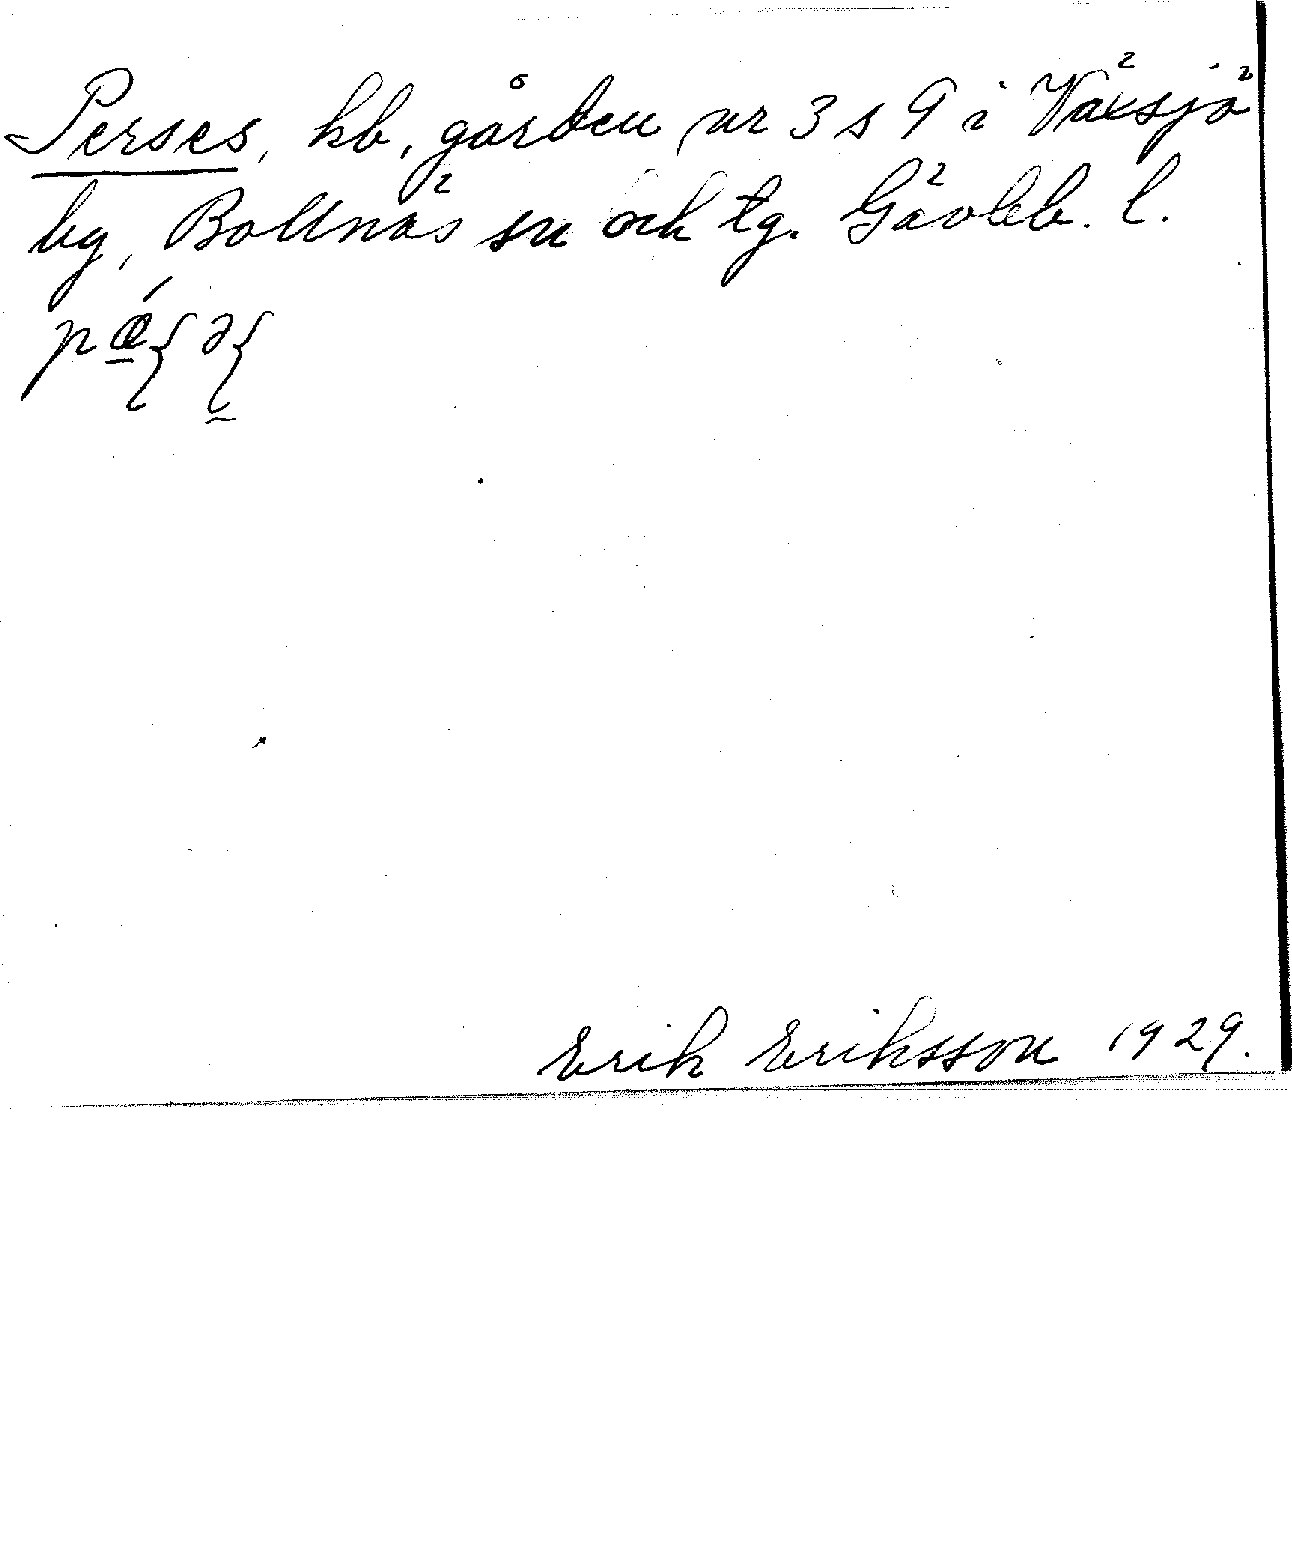 Perses, hb, gården nr 3 s 9 i Växsjö
by, Bollnäs sn och tg. Gävleb. l.
Erik Eriksson 1929.